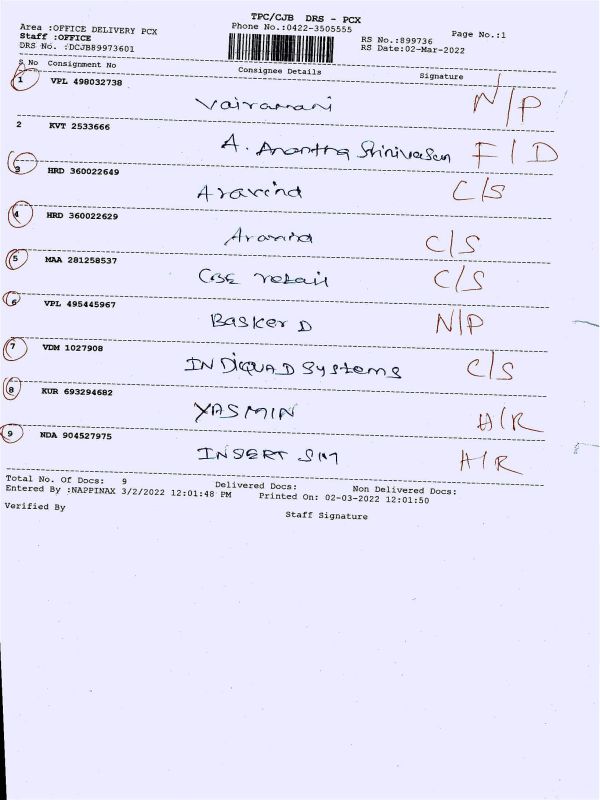 TPC/CJB DRS - PCX
Area :OFFICE DELIVERY PCX
Phone No.:0422-3505555
Page No.:1
Staff :OFFICE
RS No.:899736
DRS No. :DCJB89973601
RS Date:02-Mar-2022
S No Consignment No Consignee Details Signature
1 VPL 498032738
Vairamani N/P
2 KVT 2533666
A. Anantha Srinivasan F/D
3 HRD 360022649
Aravind C/S
4 HRD 360022629
Aravind C/S
5 MAA 281258537
CBE retail C/S
6 VPL 495445967
Basker D N/P
7 VDM 1027908
INDIQUAD Systems C/S
8 KUR 693294682
YASMIN A/R
9 NDA 904527975
INSERT SIM A/R
Total No. Of Docs: 9 Delivered Docs: Non Delivered Docs:
Entered By :NAPPINAX 3/2/2022 12:01:48 PM Printed On: 02-03-2022 12:01:50
Verified By
Staff Signature